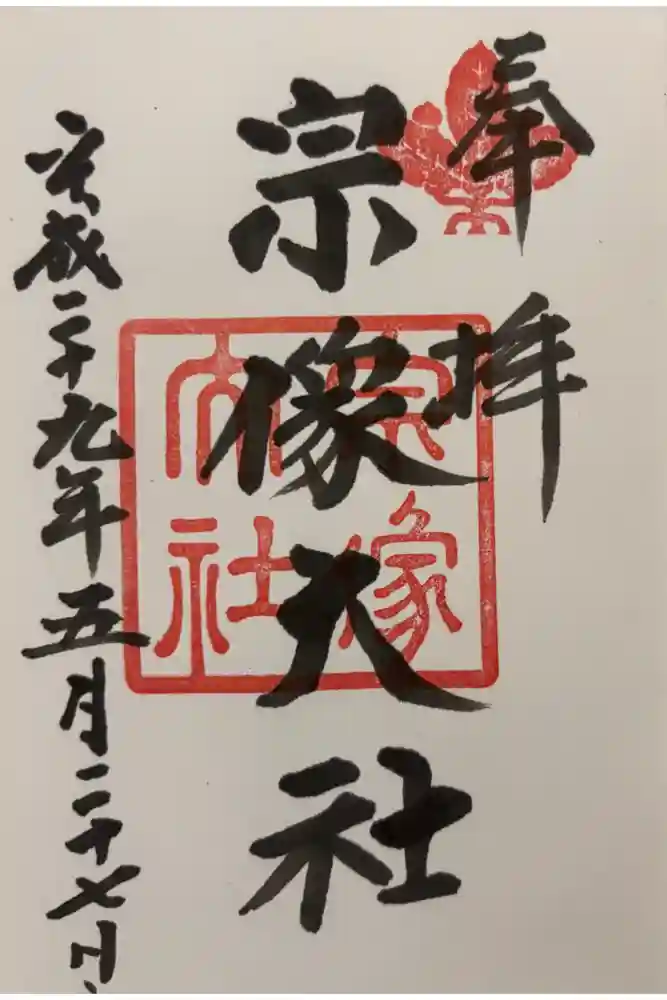 奉拝
宗像大社
宗像
大社
平成二十九年五月二十七日